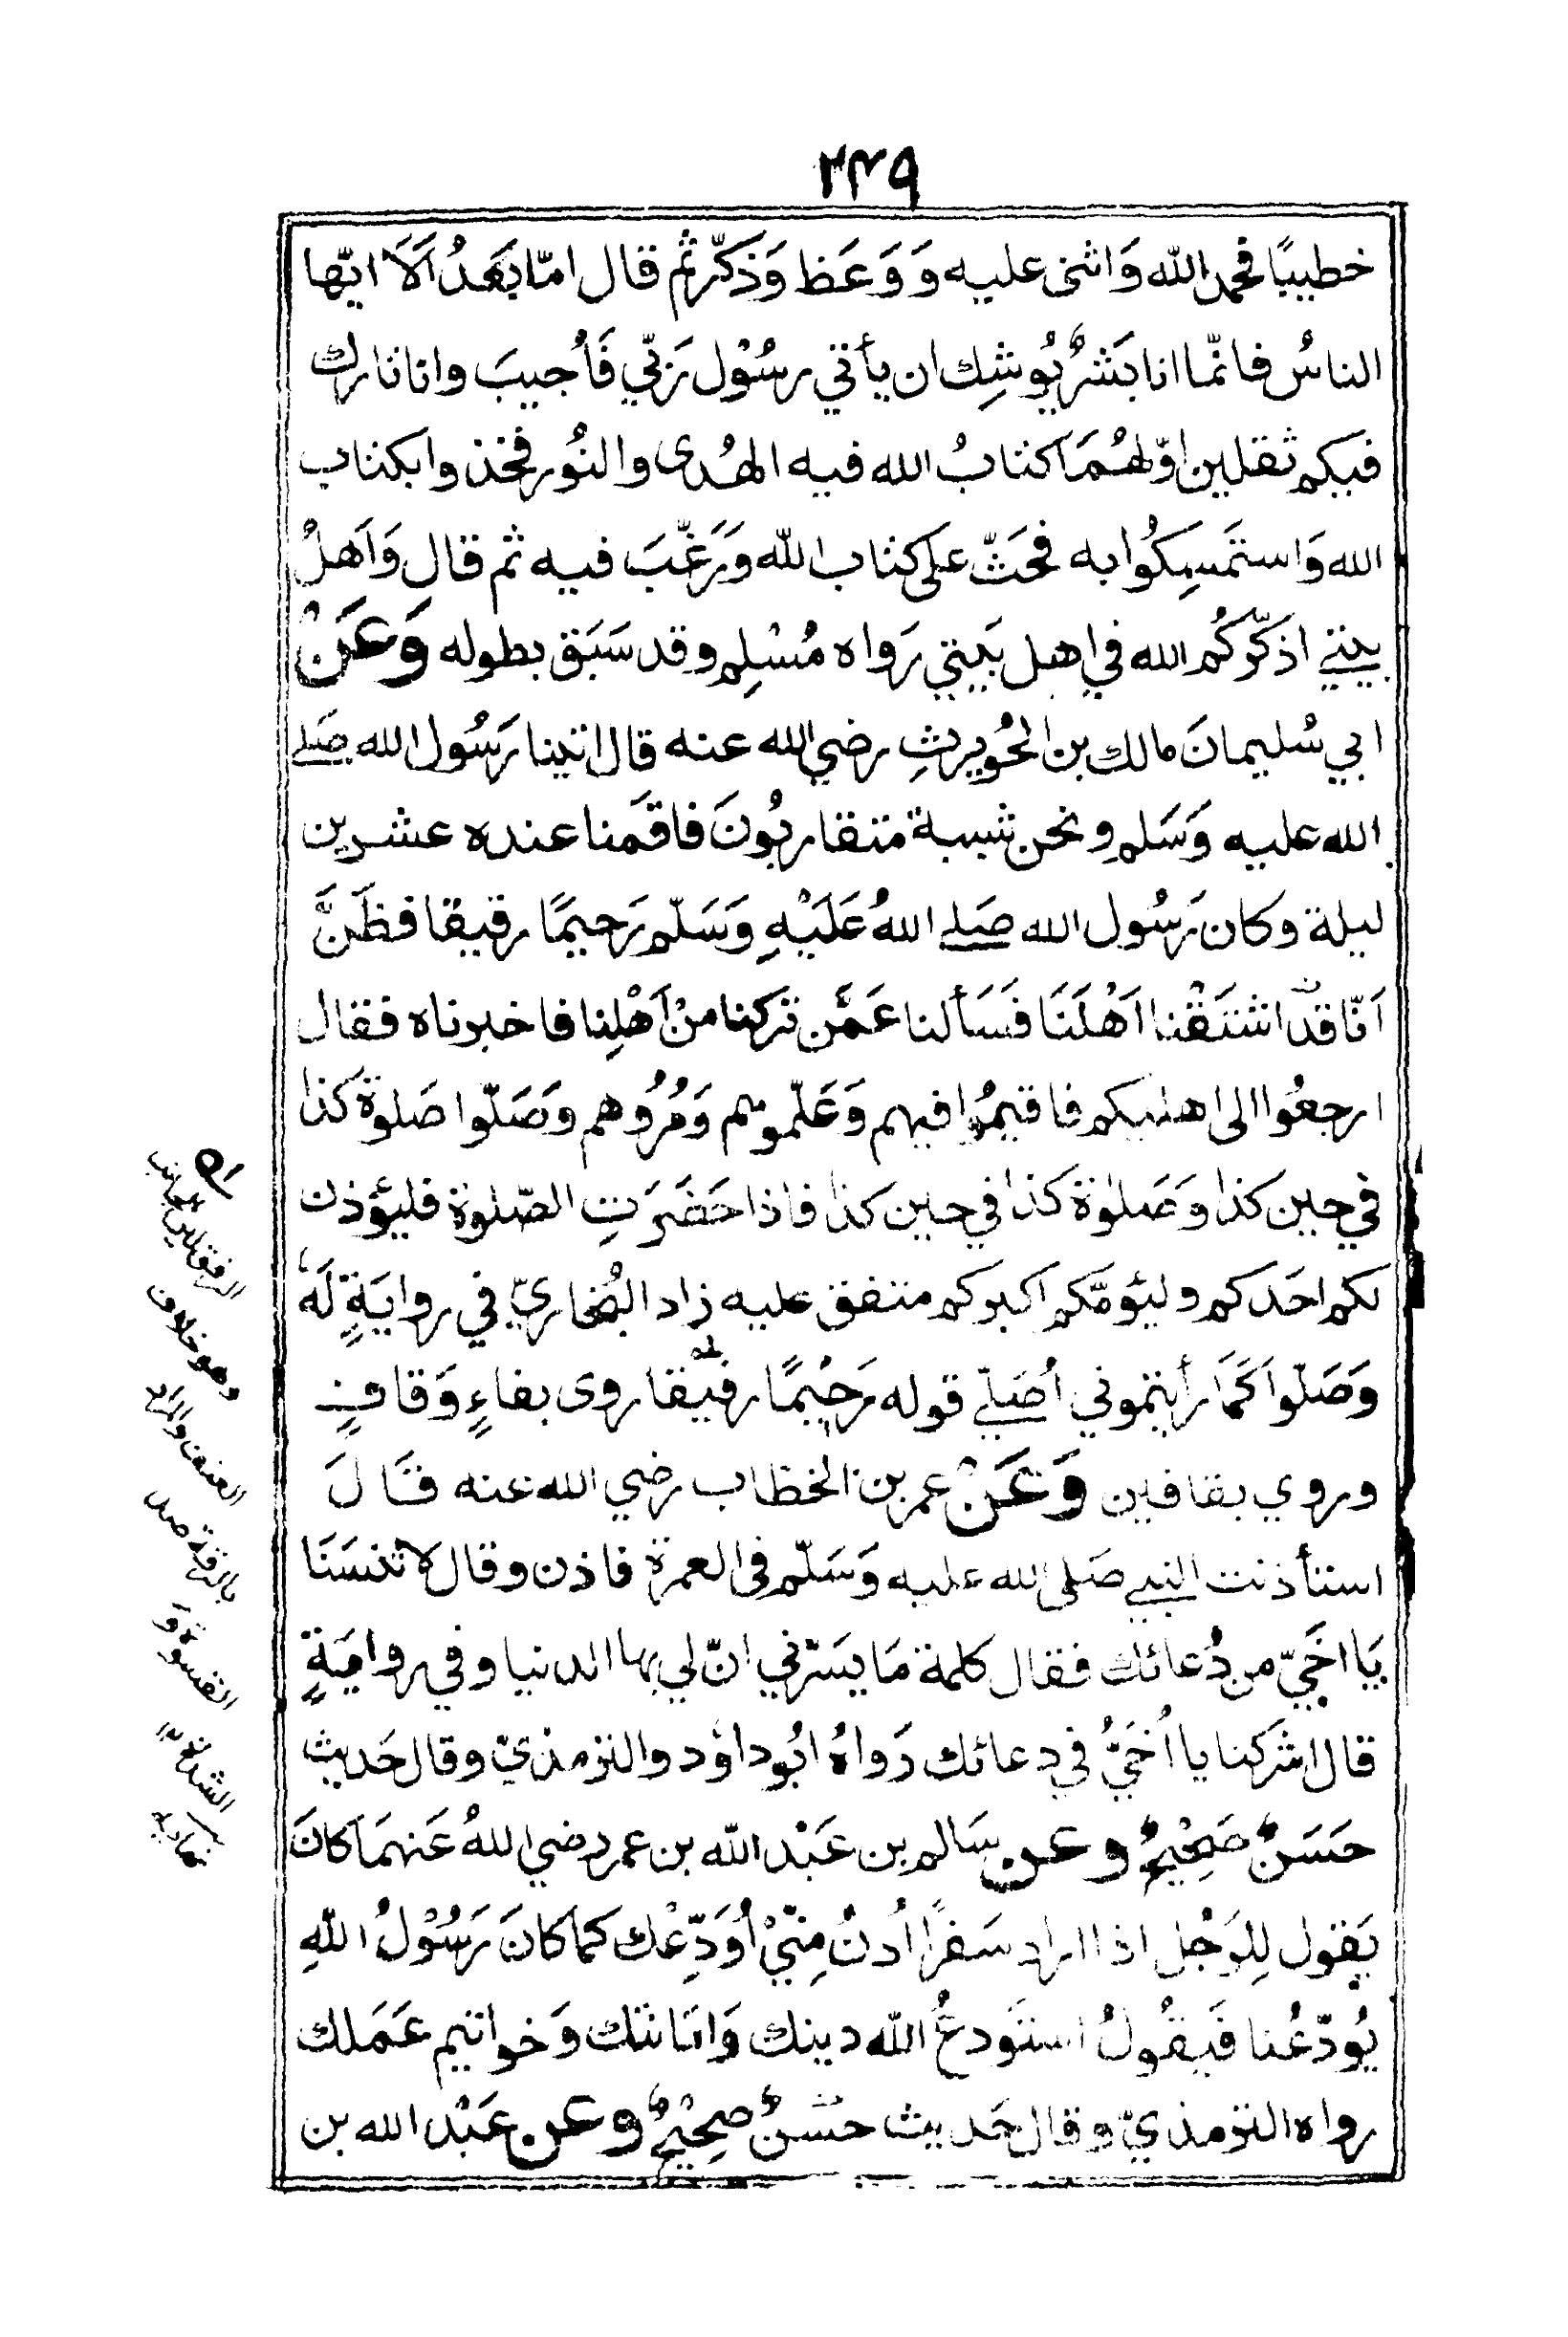 ٢٤٩
خطيبًا فحمد الله وَاثنى عليه وَ وَعَظ وَذَكّر ثم قال امّا بَعدُ اَلَا ايّها
الناسُ فانّما انا بَشرٌ يُوشِك ان يأتي رسُوْل رَبّي فَاُجيبَ وانا تارك
فيكم ثقلين اوّلهُمَا كتابُ الله فيه الهُدى والنُور فخذوا بكتاب
الله وَاستَمسِكُوا به فحَثّ على كتاب الله وَرَغّبَ فيه ثم قال وَاَهلُ
بيتي اذكّركُم الله في اهل بَيتي رَواه مُسْلِم وقد سَبَق بطوله وَعَنْ
ابي سُليمانَ مالك بن الحُوَيرثِ رضي الله عنه قال اتينا رَسُول الله صَلى
الله عليه وَسَلم ونحن شببة متقاربُونَ فاقَمنا عنده عشرين
ليلة وكان رَسُول الله صَلى اللهُ عَلَيْهِ وَسَلّم رَحيمًا رقيقا فظَنَّ
اَنّا قد اشتَقْنا اَهْلَنَا فَسَألنا عَمَّن تركنا منْ اَهْلِنا فاخبرناه فقال
ارجعُوا الى اهليكم فاقيمُوا فيهم وَعَلّموهم وَمُرُوهم وَصَلّوا صَلوة كذا
في حين كذا وَصَلوٰة كذا في حين كذا فاذا حَضَرَتِ الصّلوة فليؤذن
لكم احَدكم وليؤمّكم اكبركم متفق عليه زاد البُخاريّ في روايَةٍ لَهُ
وَصَلّوا كَمَا رَأيتموني اُصَلّي قوله رَحِيْمًا رفيقا روى بفاءٍ وَقافٍ
وروي بقافين وَعَنْ عمر بن الخطاب رضي الله عنه قَالَ
استأذنت النبي صَلى الله عليه وَسَلّم في العمرة فاذن وقال لا تنسَنَا
يَا اخَيّ من دُعائك فقال كلمة مَا يسَرّني انّ لي بها الدنيا وفي روايَةٍ
قال اشركنا يا اُخَيُّ في دعائك رَواهُ ابُو داوٗد والترمذيّ وقال حَديث
حَسَنٌ صَحِيْحٌ وعن سَالم بن عَبْد الله بن عمر رضي اللهُ عَنهمَا كانَ
يَقول لِلرَجُل اذا اراد سَفرًا اُدنُ مِنّيْ اُوَدِّعْك كمَا كانَ رَسُوْلُ اللهِ
يُودّعُنا فَيقُولُ استَودعُ الله دينك وَامَانتك وَخواتيم عَمَلك
رواه الترمذيّ وقال حَديث حَسَنٌ صحِيْحٌ وعن عَبْد الله بن
الرفق لين الجانب
وهو خلاف
العنف